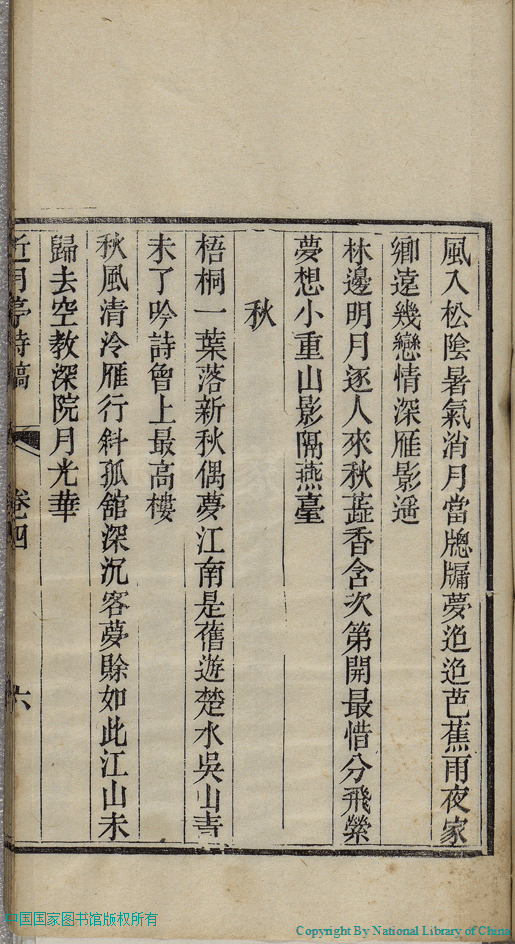 風入松陰暑氣消月當牕牗夢迢迢芭蕉雨夜家
鄉遠幾戀情深雁影遥
林邊明月逐人來秋蕋香含次第開最惜分飛縈
夢想小重山影隔燕臺
秋
梧桐一葉落新秋偶夢江南是舊遊楚水吳山青
未了吟詩曾上最高樓
秋風清泠雁行斜孤舘深沉客夢賖如此江山未
歸去空教深院月光華
近月亭詩稿 卷四 六
中国国家图书馆版权所有
Copyright By National Library of China